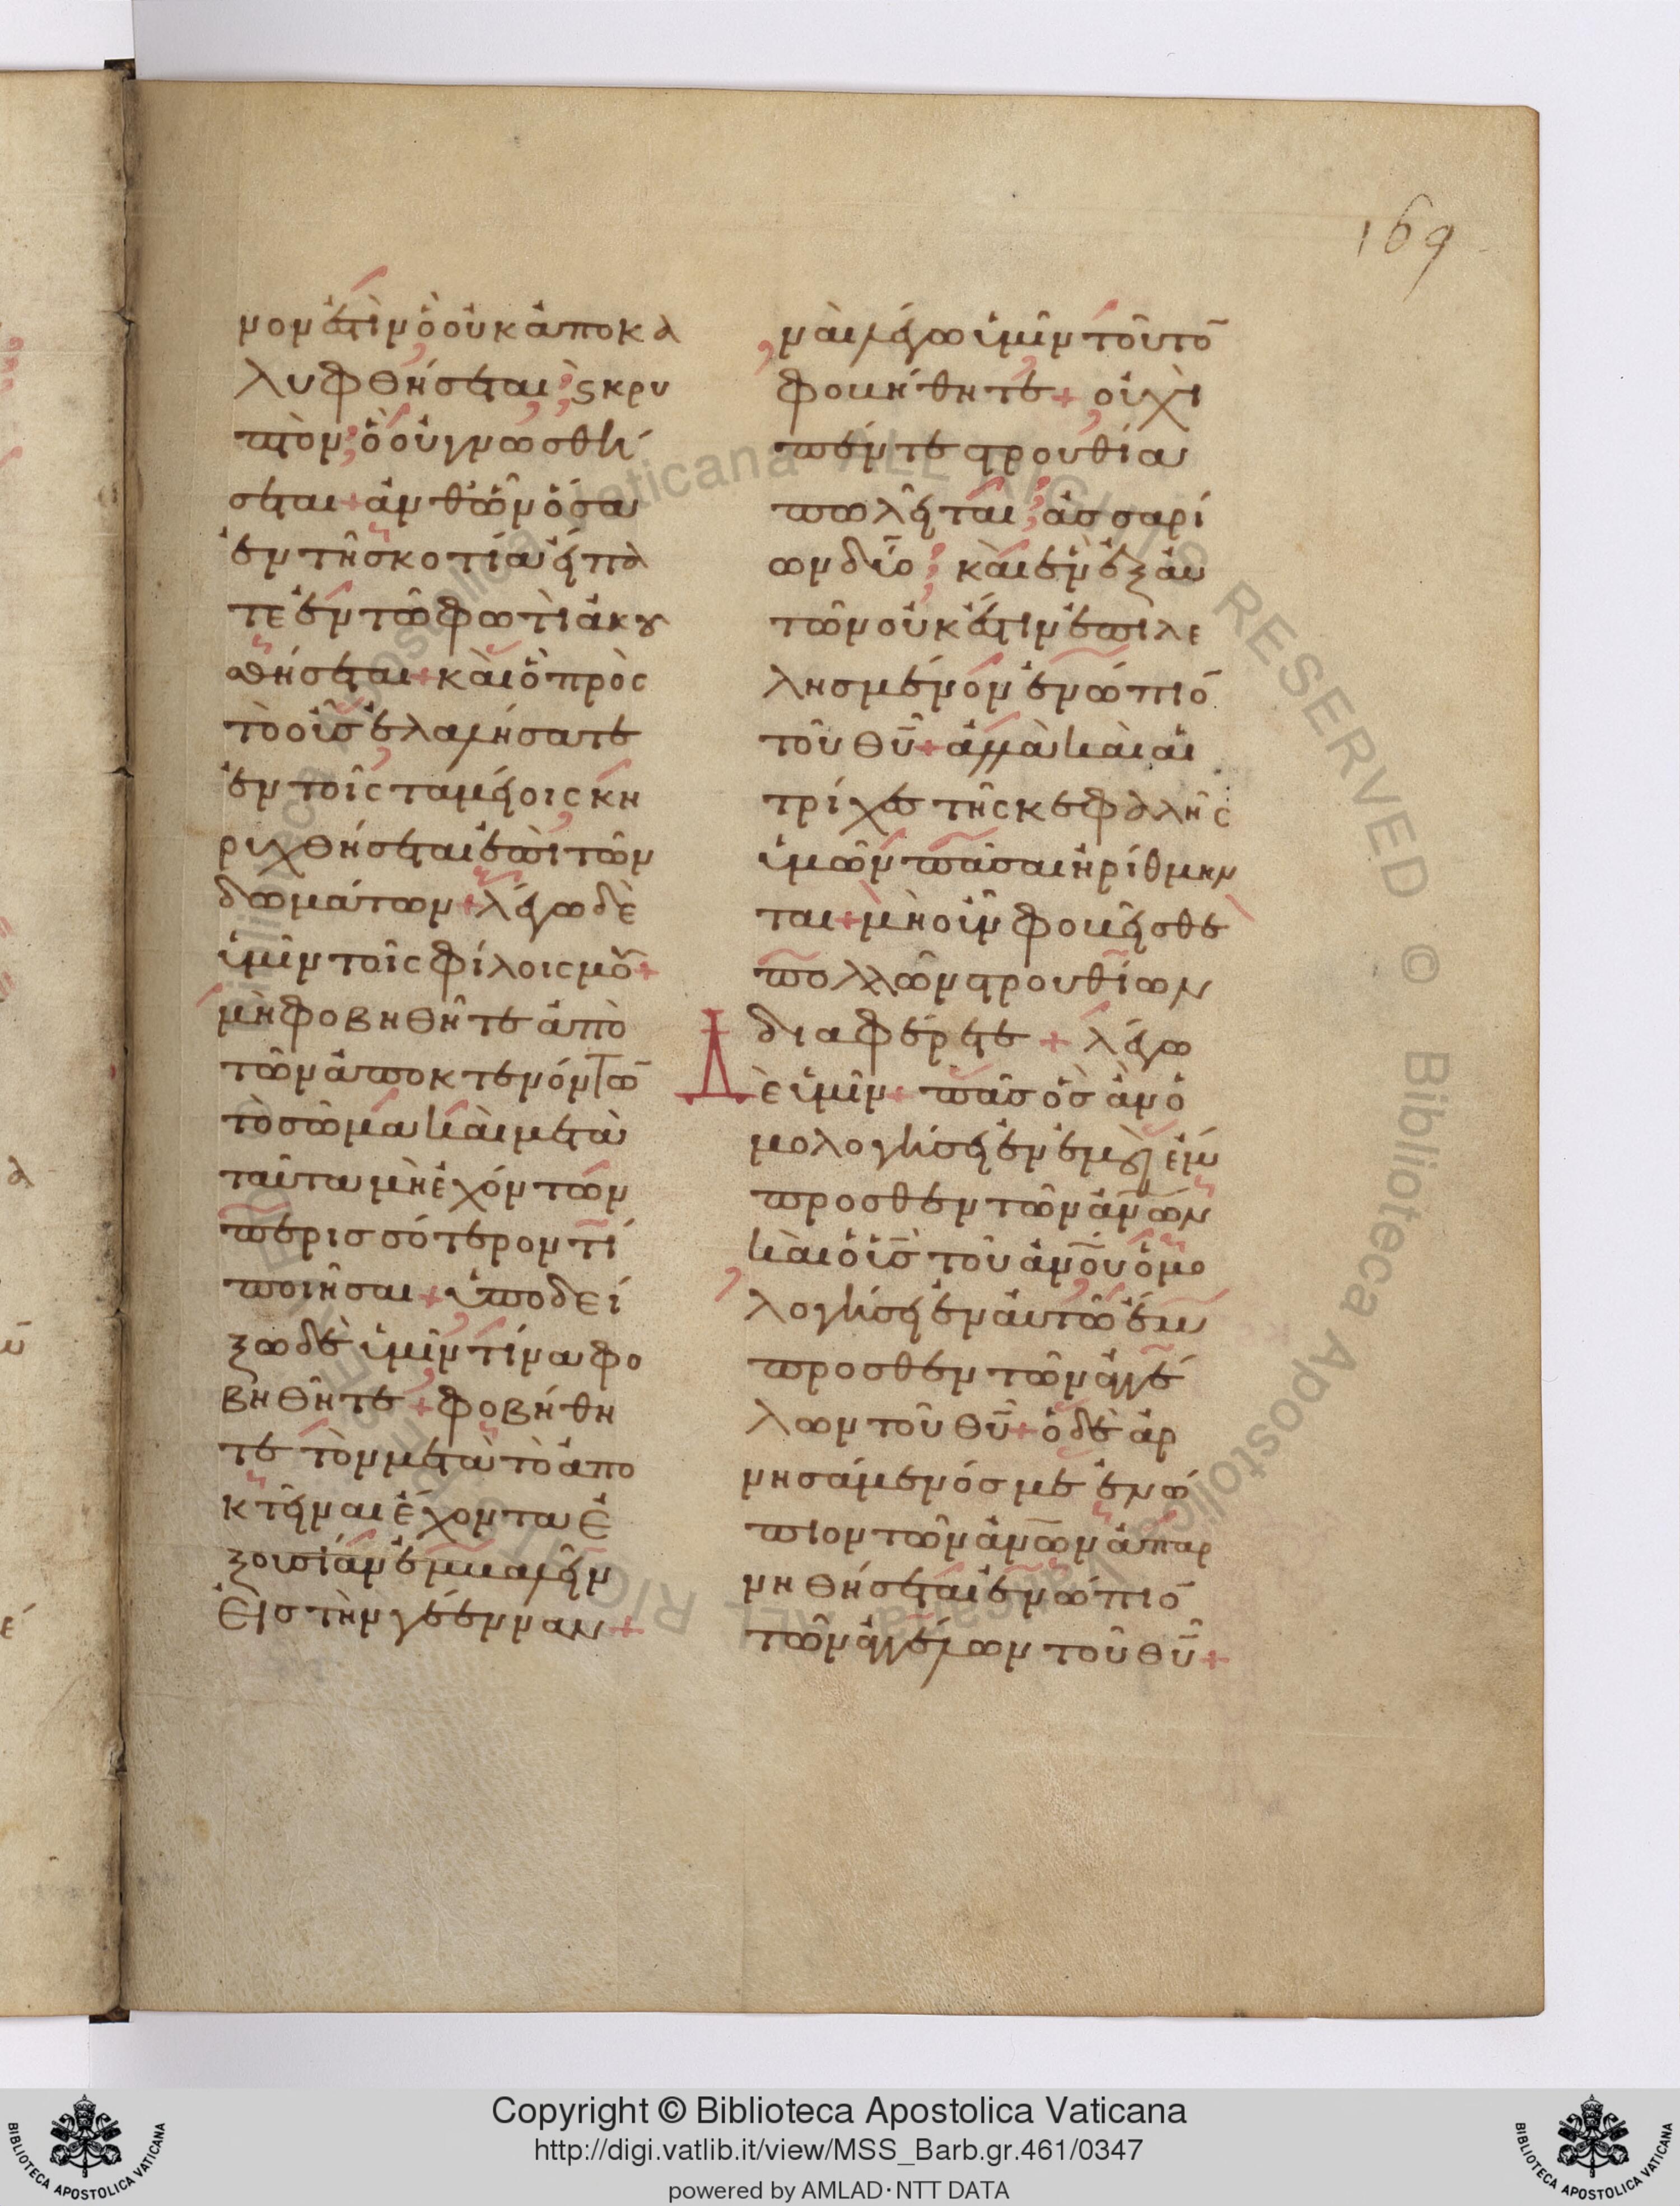 169
νον ἐστὶν ὃ οὐκ ἀποκα
λυφθήσεται ϛ κρυ
πτὸν, ὃ οὐ γνωσθή
σεται + ἀνθῶν ὅσα
ἐν τῆ σκοτία εἴπα
τε ἐν τῶ φωτὶ ἀκȣ
σθήσεται + καὶ ὃ πρὸς
τὸ οὖς ἐλαλήσατε
ἐν τοῖς ταμείοις κη
ρυχθήσεται ἐπὶ τῶν
δωμάτων + λέγω δὲ
ὑμῖν τοῖς φίλοις μȣ +
μὴ φοβηθῆτε ἀπὸ
τῶν ἀποκτενόντω̄
τὸ σῶμα καὶ μετὰ
ταῦτα μὴ ἐχόντων
περισσότερον τί
ποιῆσαι + ὑποδεί
ξω δὲ ὑμῖν τίνα φο
βηθῆτε + φοβήθη
τε τὸν μετὰ τὸ ἀπο
κτεῖναι ἔχοντα ἐ
ξουσίαν ἐμβαλεῖν
εἰς τὴν γέενναν +
ναὶ λέγω ὑμῖν τοῦτο̄
φοβήθητε + οὐχὶ
πέντε στρουθία
πωλεῖται ἀσσαρί
ων δύο καὶ ἓν ἐξ αυ
τῶν οὐκ ἔστιν ἐπιλε
λησμένον ἐνώπιο̄
τοῦ θ̄ῡ + ἀλλὰ καὶ αἱ
τρίχες τῆς κεφαλῆς
ὑμῶν πᾶσαι ἠρίθμην
ται + μὴ οὖν φοβεῖσθε
πολλῶν στρουθίων
διαφέρετε + λέγω
Δὲ ὑμῖν + πᾶς ὃς ἂν ὁ
μολογήση ἐν ἐμοὶ ἔμ
προσθεν τῶν ἀν̄ων
καὶ ὁ ῡς̄ τοῦ ἀν̄ου ὁμο
λογήσει ἐν αὐτῶ ἔμ
προσθεν τῶν ἀγγέ
λων τοῦ θ̄ῡ + ὁ δὲ ἀρ
νησάμενός με ἐνώ
πιον τῶν ἀν̄ων ἀπαρ
νηθήσεται ἐνώπιο̄
τῶν ἀγγέλων τοῦ θ̄ῡ +
Copyright © Biblioteca Apostolica Vaticana
http://digi.vatlib.it/view/MSS_Barb.gr.461/0347
powered by AMLAD·NTT DATA